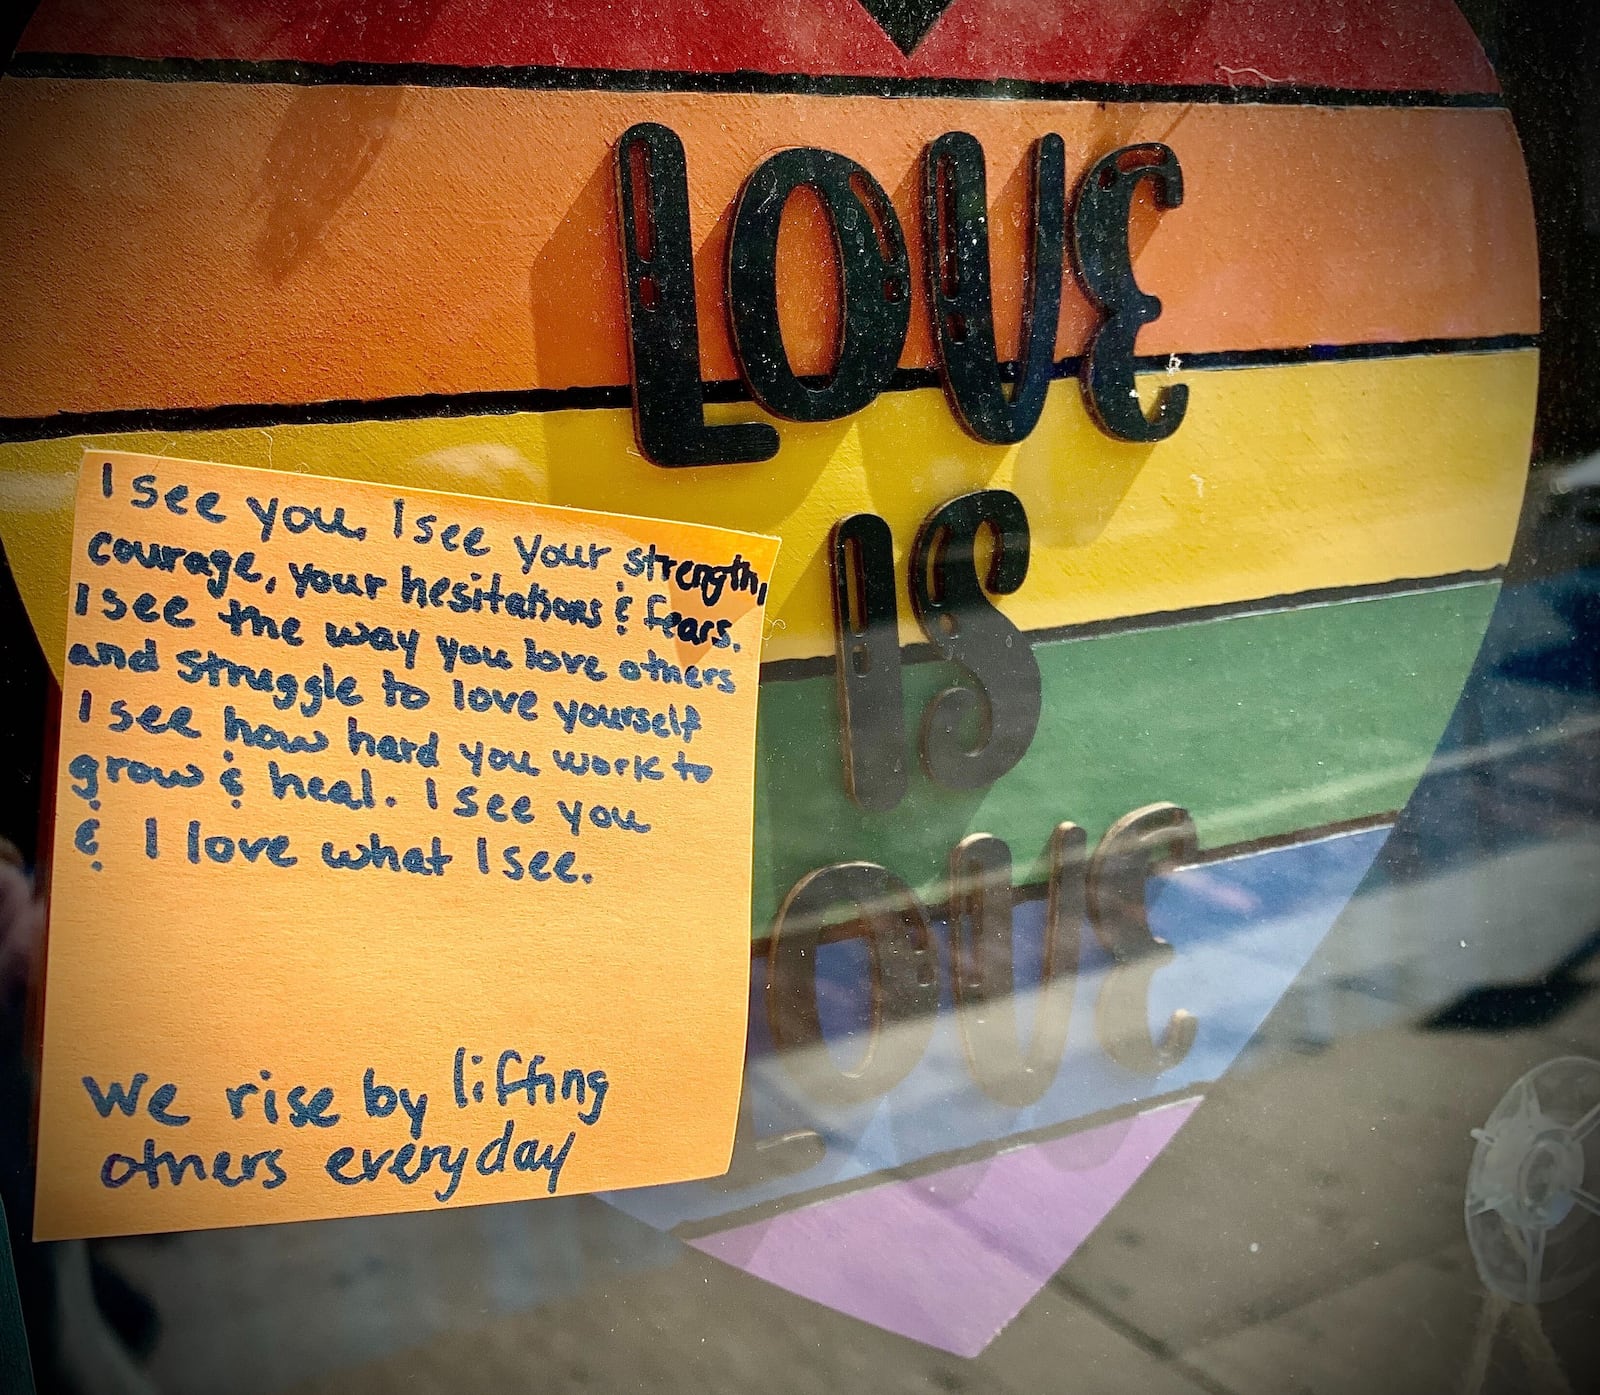 LOVE
IS
LOVE
I see you, I see your strength,
courage, your hesitations & fears.
I see the way you love others
and struggle to love yourself
I see how hard you work to
grow & heal. I see you
& I love what I see.
We rise by lifting
others everyday